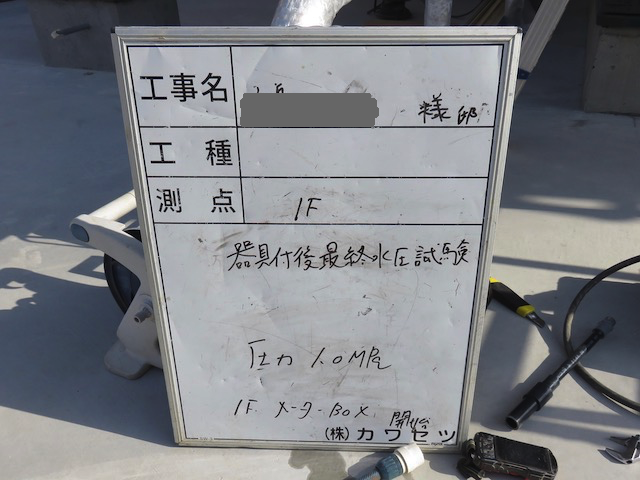 工事名 様邸
工種
測点 1F
器具付後最終水圧試験
圧力 1.0MPa
1F メーターBOX 開始
(株)カワセツ